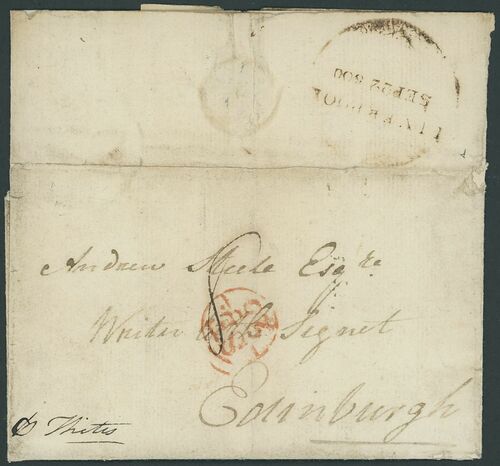 LIVERPOOL
SEP 22 800
Andrew Steele Esqre
Writer to the Signet
Edinburgh
p Thetis